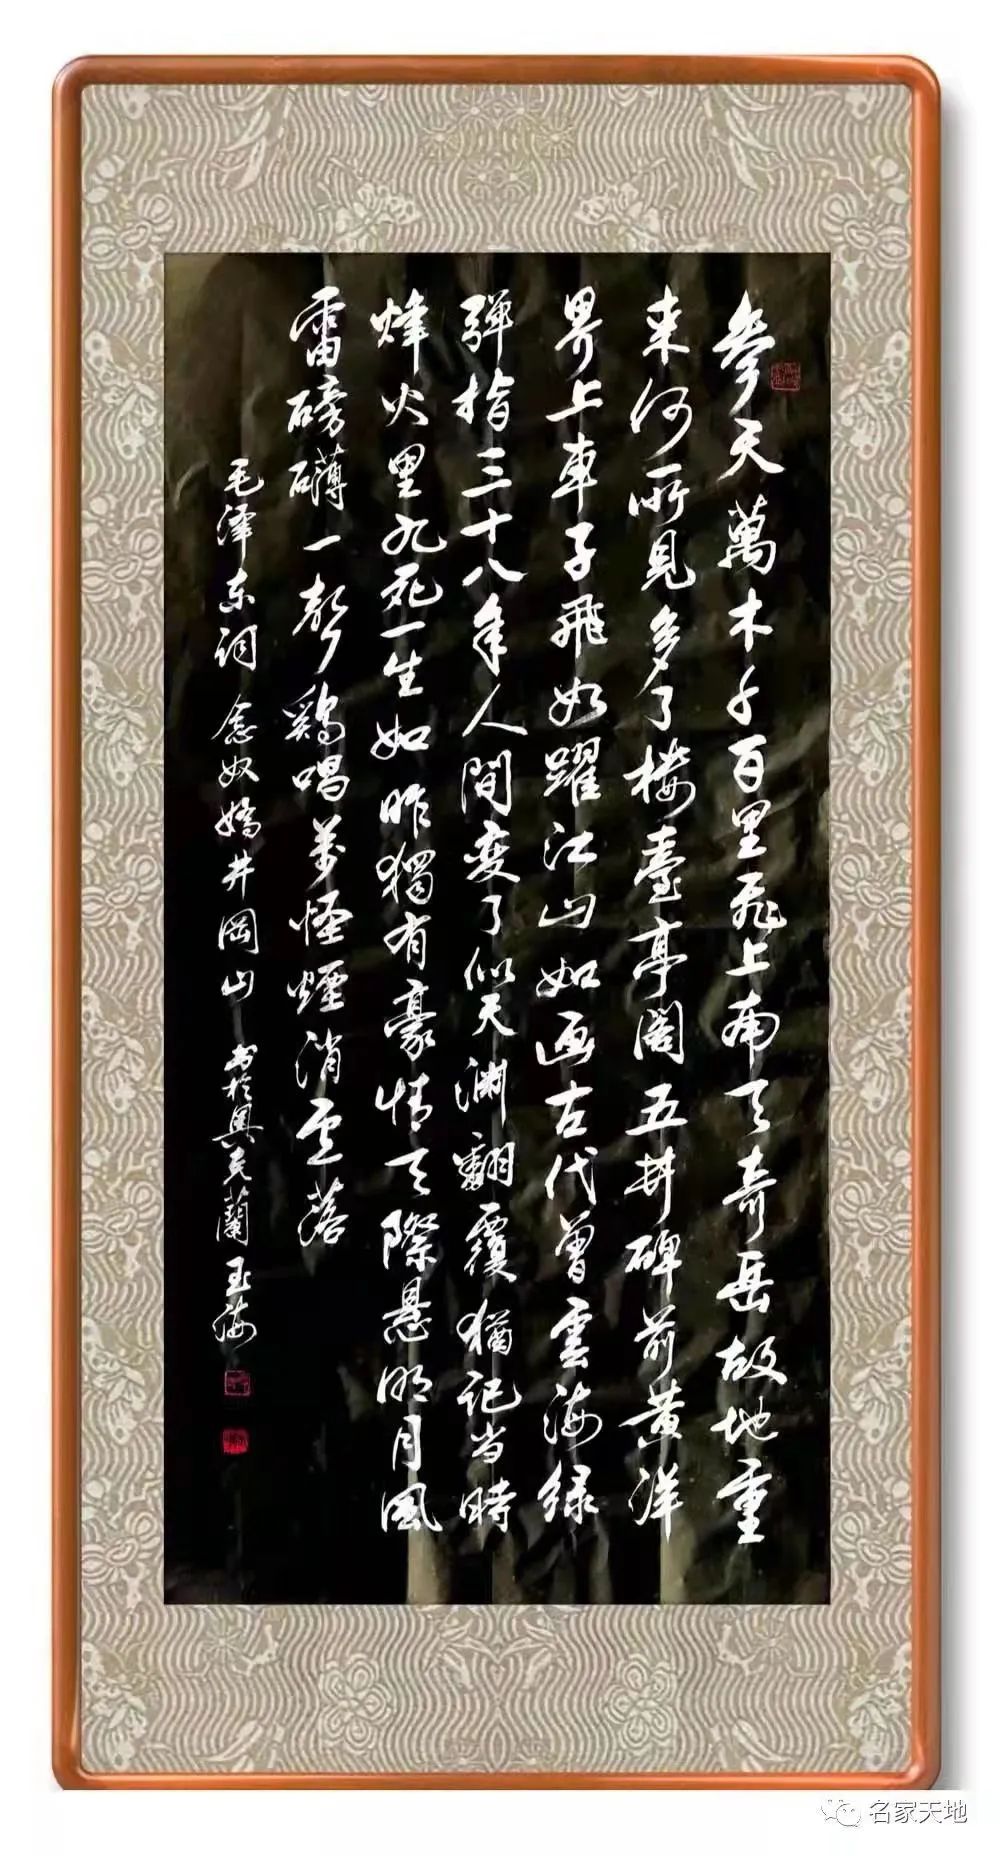 參天萬木千百里飛上南天奇岳故地重
来何所見多了樓臺亭閣五井碑前黄洋
界上車子飛如躍江山如画古代曾雲海绿
彈指三十八年人間变了似天渊翻覆猶记当時
烽火里九死一生如昨獨有豪情天際悬明月風
雷磅礴一聲鷄唱萬怪煙消雲落
毛澤东词念奴嬌井岡山 书於奥克蘭玉海
名家天地